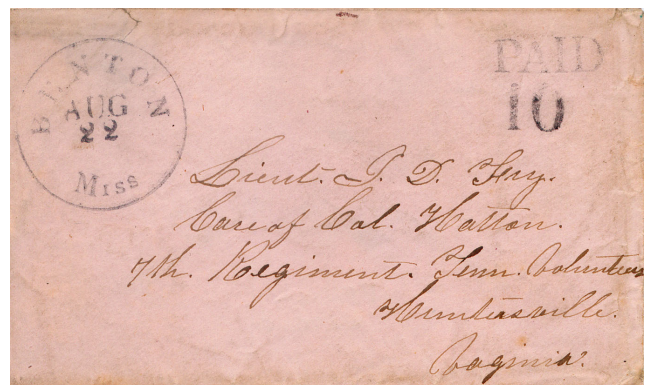 BEXTON
AUG
22
Miss
PAID
10
Lieut. J. D. Fry.
Care of Col. Hatton.
7th. Regiment. Tenn. Volunteers
Huntersville.
Vaginia.